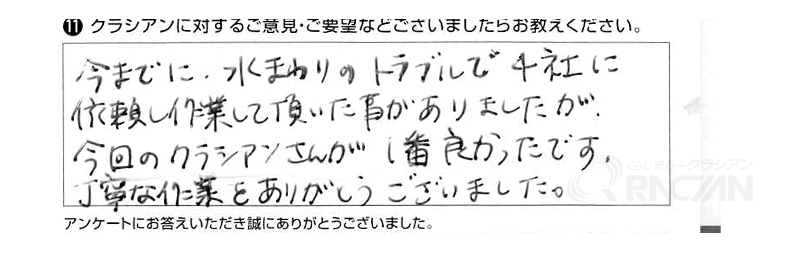 ⓫ クラシアンに対するご意見・ご要望などございましたらお教えください。
今までに、水まわりのトラブルで4社に
依頼し作業して頂いた事がありましたが、
今回のクラシアンさんが1番良かったです。
丁寧な作業をありがとうございました。
くらし安心クラシアン
QRACIAN
アンケートにお答えいただき誠にありがとうございました。